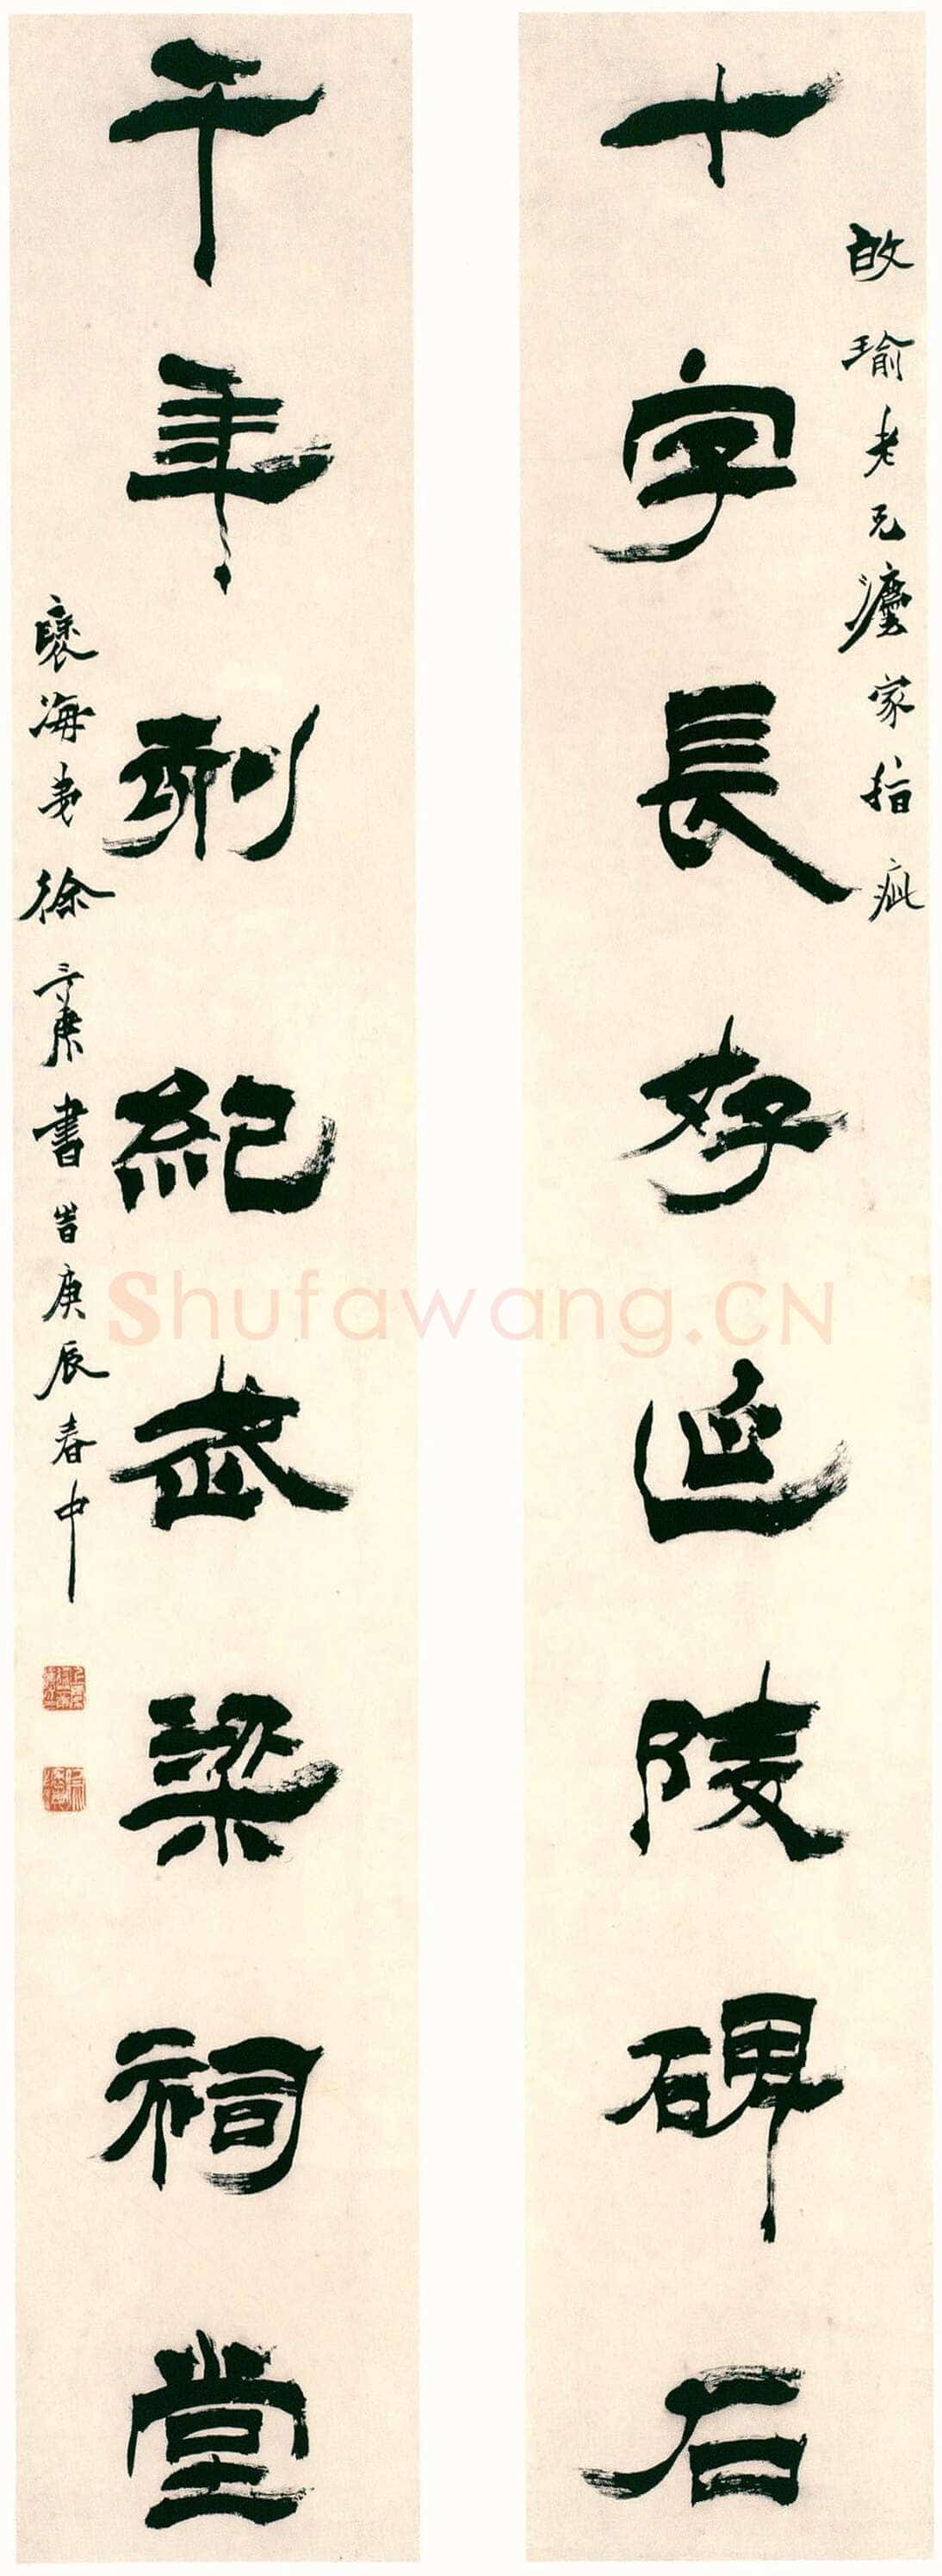 十字長存延陵碑石
瑜老兄灋家指疵
千年紀武梁祠堂
褎海弟徐三庚書峕庚辰春中
Shufawang.CN